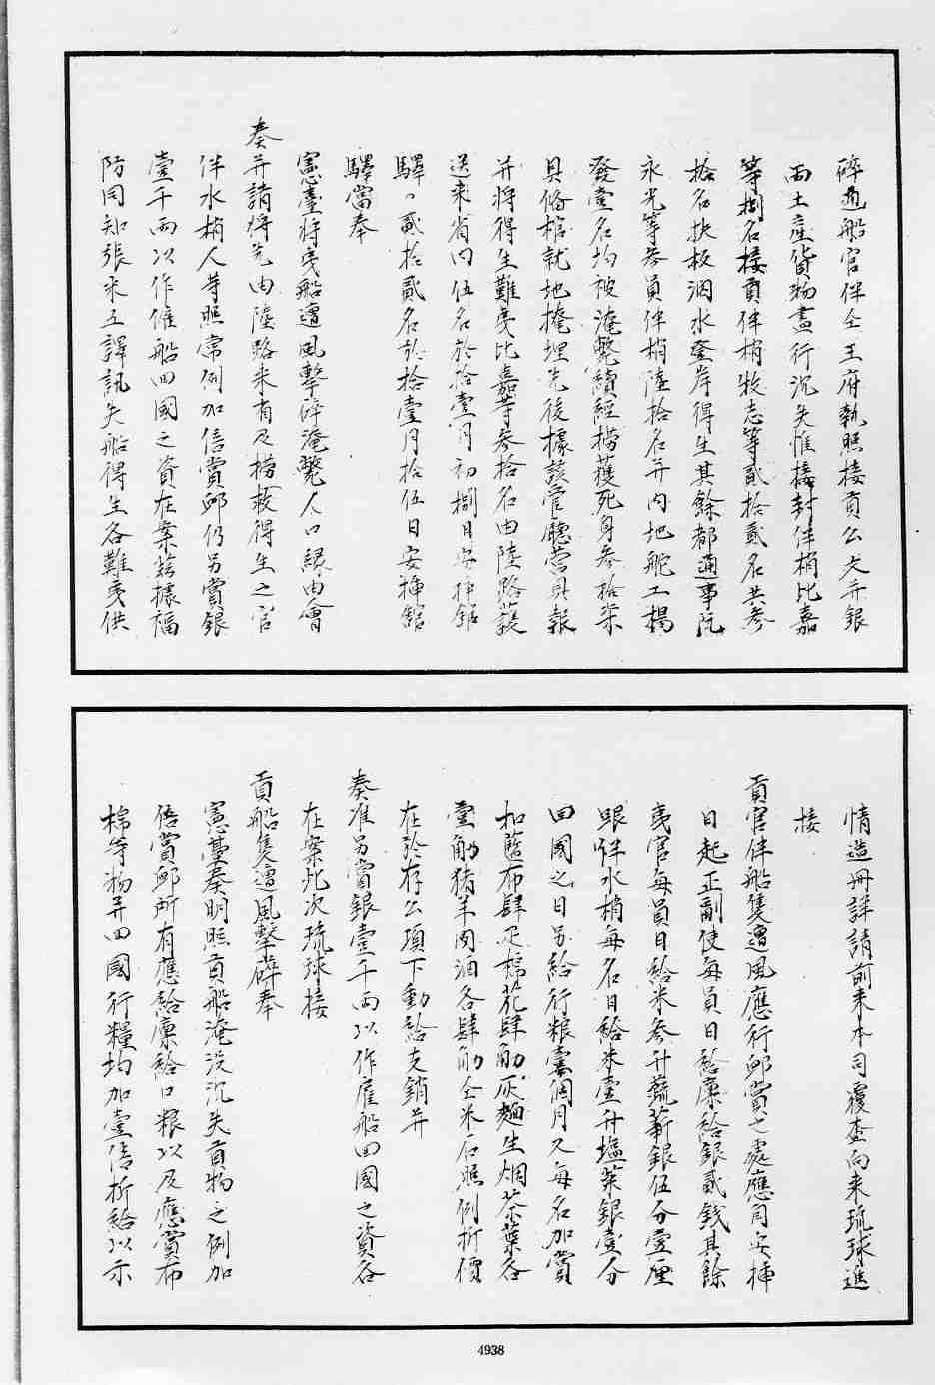 碎通船官伴仝王府執照接貢公文并銀
両土產貨物盡行沉失惟接封伴梢比嘉
等捌名接貢伴梢牧志等貳拾貳名共參
拾名扶板泅水登岸得生其餘都通事阮
永光等參員伴梢陸拾名并內地舵工楊
發壹名均被淹斃續經撈獲死身參拾柒
具俻棺就地掩埋先後據該管廳營具報
并將得生難夷比嘉等參拾名由陸路護
送來省內伍名於拾壹月初捌日安揷館
驛〻貳拾貳名於拾壹月拾伍日安揷館
驛當奉
憲臺將夷船遭風擊碎淹斃人口緣由會
奏并請將先由陸路來有及撈救得生之官
伴水梢人等照常例加倍賞卹仍另賞銀
壹千両以作僱船回國之資在案玆據福
防同知張采五譯訊失船得生各難夷供
情造冊詳請前來本司覆查向來琉球進
接
貢官伴船隻遭風應行卹賞之處應自安揷
日起正副使每員日給廩給銀貳錢其餘
夷官每員日給米參升蔬薪銀伍分壹厘
跟伴水梢每名日給米壹升塩菜銀壹分
回國之日另給行粮壹個月又每名加賞
和藍布肆疋棉花肆觔灰麵生烟茶葉各
壹觔猪羊肉酒各肆觔仝米石照例折價
在於存公項下動給支銷并
奏准另賞銀壹千両以作雇船回國之資各
在案此次琉球接
貢船隻遭風擊碎奉
憲臺奏明照貢船淹沒沉失貢物之例加
倍賞卹所有應給廩給口粮以及應賞布
棉等物并回國行糧均加壹倍折給以示
4938